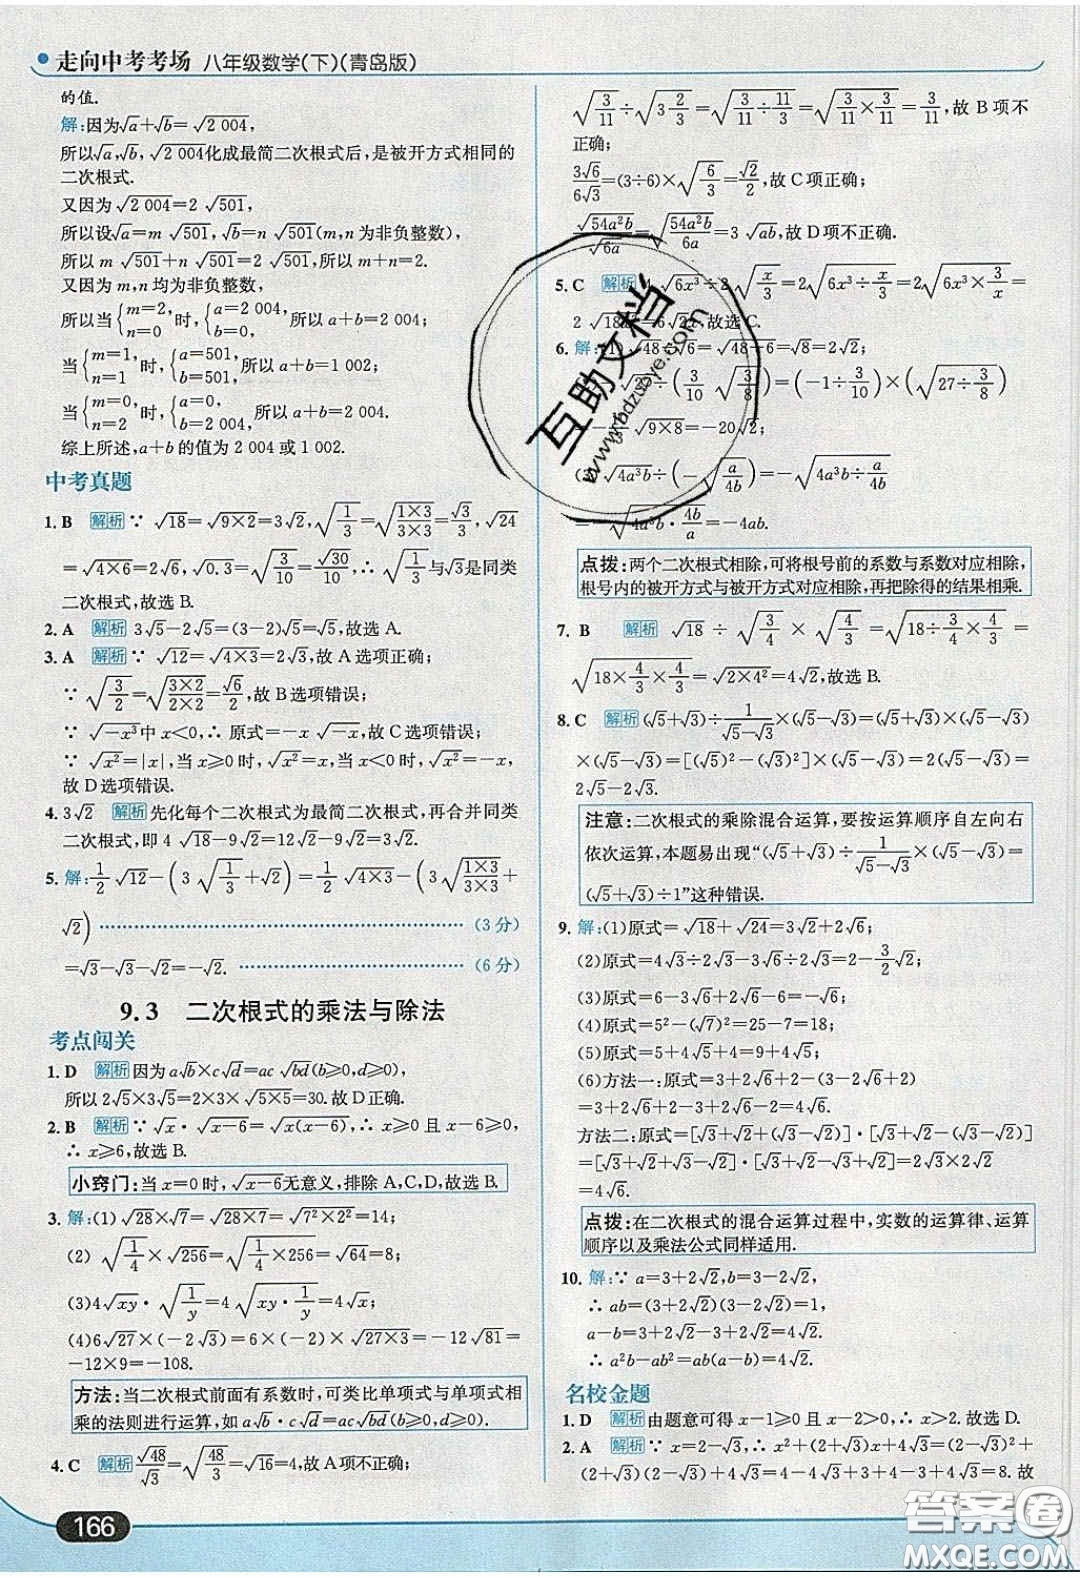 走向中考考场 八年级数学(下)(青岛版)
的值.
解:因为√a+√b=√2 004,
所以√a,√b,√2 004化成最简二次根式后,是被开方式相同的
二次根式.
又因为√2 004=2 √501,
所以设√a=m √501,√b=n √501(m,n为非负整数),
所以 m √501+n √501=2 √501,所以 m+n=2.
又因为 m,n 均为非负整数,
所以当{m=2, n=0 时,{a=2 004, b=0, 所以 a+b=2 004;
当{m=1, n=1 时,{a=501, b=501, 所以 a+b=1 002;
当{m=0, n=2 时,{a=0, b=2 004, 所以 a+b=2 004.
综上所述,a+b 的值为 2 004 或 1 002.
中考真题
1. B 解析 ∵ √18=√(9×2)=3√2,√(1/3)=√((1×3)/(3×3))=√3/3,√24
=√(4×6)=2√6,√0.3=√(3/10)=√30/10,∴√(1/3)与√3是同类
二次根式,故选 B.
2. A 解析 3√5-2√5=(3-2)√5=√5,故选 A.
3. A 解析 ∵ √12=√(4×3)=2√3,故 A 选项正确;
∵ √(3/2)=√((3×2)/(2×2))=√6/2,故 B 选项错误;
∵ √(-x³)中 x<0,∴原式=-x √(-x),故 C 选项错误;
∵ √x²=|x|,当 x≥0 时,√x²=x,当 x<0 时,√x²=-x,
故 D 选项错误.
4. 3√2 解析 先化每个二次根式为最简二次根式,再合并同类
二次根式,即 4 √18-9√2=12√2-9√2=3√2.
5. 解:1/2 √12-(3 √(1/3)+√2)=1/2 √(4×3)-(3√((1×3)/(3×3))+
√2) ……………… (3 分)
=√3-√3-√2=-√2. ……………… (6 分)
9.3 二次根式的乘法与除法
考点闯关
1. D 解析 因为 a√b×c√d=ac √bd(b≥0,d≥0),
所以 2√5×3√5=2×3× √(5×5)=30. 故 D 正确.
2. B 解析 ∵√x · √(x-6)=√(x(x-6)),∴x≥0 且 x-6≥0,
∴x≥6,故选 B.
小窍门:当 x=0 时,√(x-6)无意义,排除 A,C,D,故选 B.
3. 解:(1)√28×√7=√(28×7)=√(7²×2²)=14;
(2) √(1/4)×√256=√(1/4×256)=√64=8;
(3)4√xy · √(1/y)=4 √(xy · 1/y)=4√x;
(4)6√27×(-2√3)=6×(-2)× √(27×3)=-12 √81=
-12×9=-108.
方法:当二次根式前面有系数时,可类比单项式与单项式相
乘的法则进行运算,如 a√b · c√d=ac√bd(b≥0,d≥0).
4. C 解析 √48/√3=√(48/3)=√16=4,故 A 项不正确;
√(3/11)÷√(3 2/3)=√(3/11÷11/3)=√(3/11×3/11)=3/11,故 B 项不
正确;
3√6/6√3=(3÷6)×√(6/3)=√2/2,故 C 项正确;
√(54a²b)/√(6a)=√(54a²b/6a)=3 √ab,故 D 项不正确.
5. C 解析 4 √6x³÷2√(x/3)=2√(6x³÷x/3)=2√(6x³×3/x)=
2 √18x²=6√2x,故选 C.
6. 解:(1) √48÷√6=√(48÷6)=√8=2√2;
÷(3/10 √(3/8))=(-1÷3/10)×(√(27÷3/8))
√(9×8)=-20√2;
(3) √4a³b÷(-√(a/4b))=-√(4a³b÷a/4b)
=-√(4a³b · 4b/a)=-4ab.
点拨:两个二次根式相除,可将根号前的系数与系数对应相除,
根号内的被开方式与被开方式对应相除,再把除得的结果相乘.
7. B 解析 √18 ÷ √(3/4) × √(4/3)=√(18÷3/4×4/3)=
√(18×4/3×4/3)=√(2×4²)=4√2,故选 B.
8. C 解析 (√5+√3)÷1/(√5-√3)×(√5-√3)=(√5+√3)×(√5-√3)
×(√5-√3)=[(√5)²-(√3)²]×(√5-√3)=2(√5-√3)=
2√5-2√3.
注意:二次根式的乘除混合运算,要按运算顺序自左向右
依次运算,本题易出现“(√5+√3)÷1/(√5-√3)×(√5-√3)=
(√5+√3)÷1”这种错误.
9. 解:(1)原式=√18+√24=3√2+2√6;
(2)原式=4√3÷2√3-6√2÷4=2-3/2√2;
(3)原式=6-3√6+2√6-6=-√6;
(4)原式=5²-(√7)²=25-7=18;
(5)原式=5+4√5+4=9+4√5;
(6)方法一:原式=3+2√6+2-(3-2√6+2)
=3+2√6+2-3+2√6-2=4√6.
方法二:原式=[√3+√2+(√3-√2)] · [√3+√2-(√3-√2)]
=[√3+√2+√3-√2] · [√3+√2-√3+√2]=2√3×2√2
=4√6.
点拨:在二次根式的混合运算过程中,实数的运算律、运算
顺序以及乘法公式同样适用.
10. 解:∵a=3+2√2,b=3-2√2,
∴ab=(3+2√2)(3-2√2)=1,
a-b=3+2√2-3+2√2=4√2.
∴a²b-ab²=ab(a-b)=4√2.
名校金题
1. D 解析 由题意可得 x-1≥0 且 x-2>0,∴x>2. 故选 D.
2. A 解析 ∵ x=2-√3,∴x²+(2+√3)x+4√3=(2-√3)²+
(2+√3)(2-√3)+4√3=4-4√3+3+4-3+4√3=8. 故
166
互助文档
www.bdzubye.com
答案圈
MXQE.COM